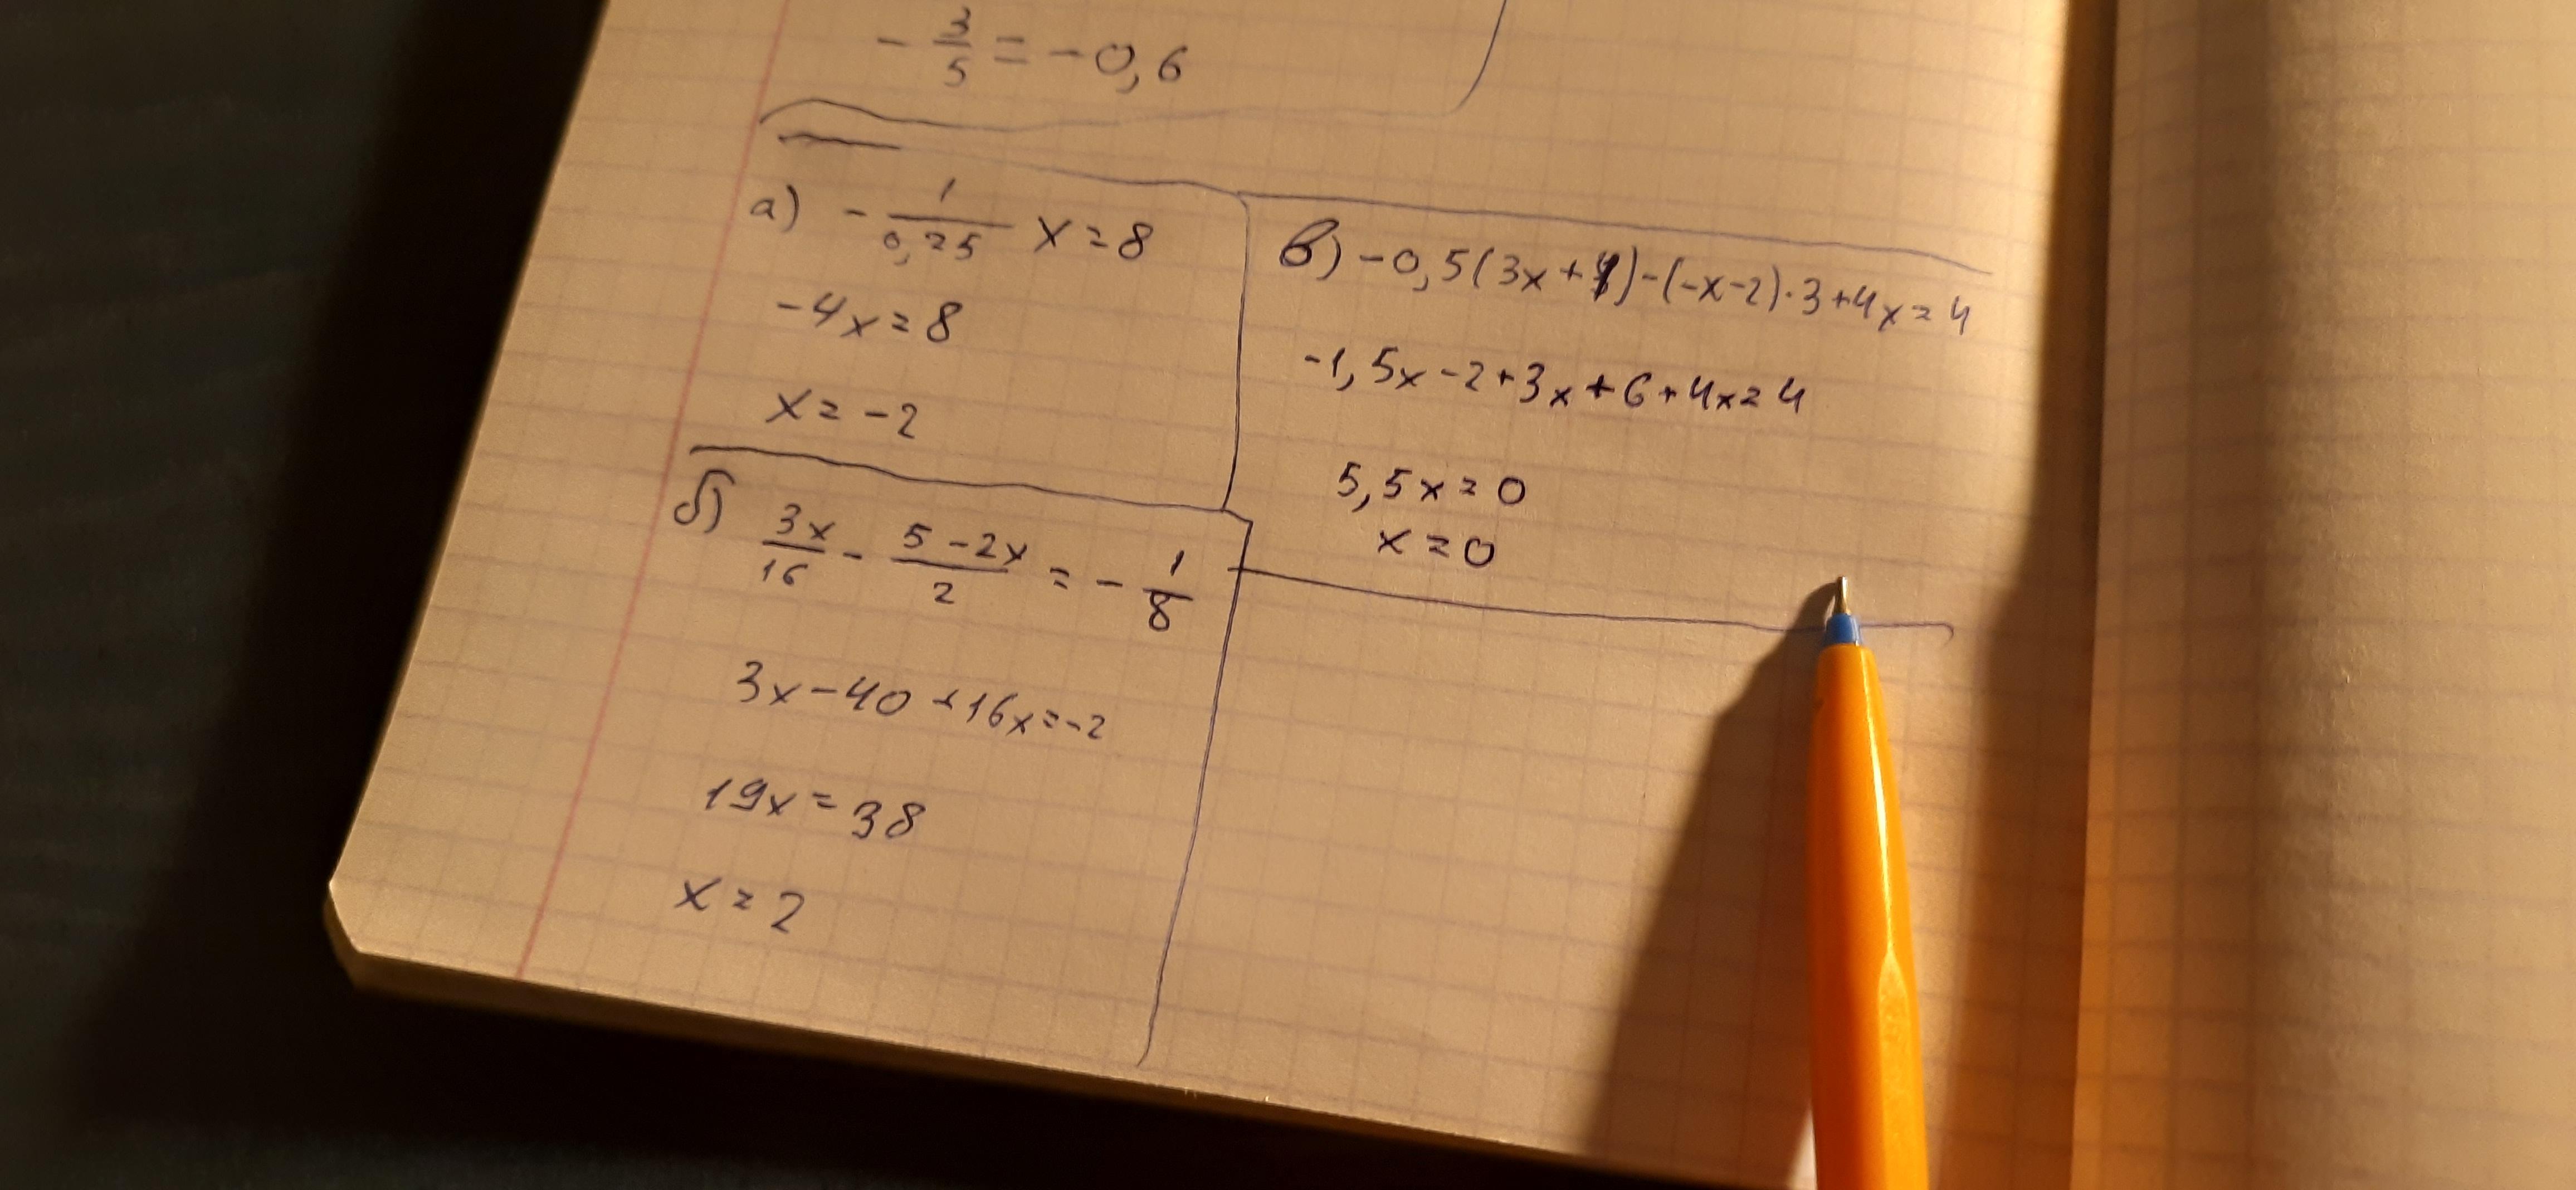 - 3/5 = -0,6
а) - 1/0,25 x = 8
-4x = 8
x = -2
б) 3x/16 - 5-2x/2 = - 1/8
3x-40+16x=-2
19x = 38
x = 2
в) -0,5(3x+4)-(-x-2)·3+4x=4
-1,5x-2+3x+6+4x=4
5,5x=0
x=0